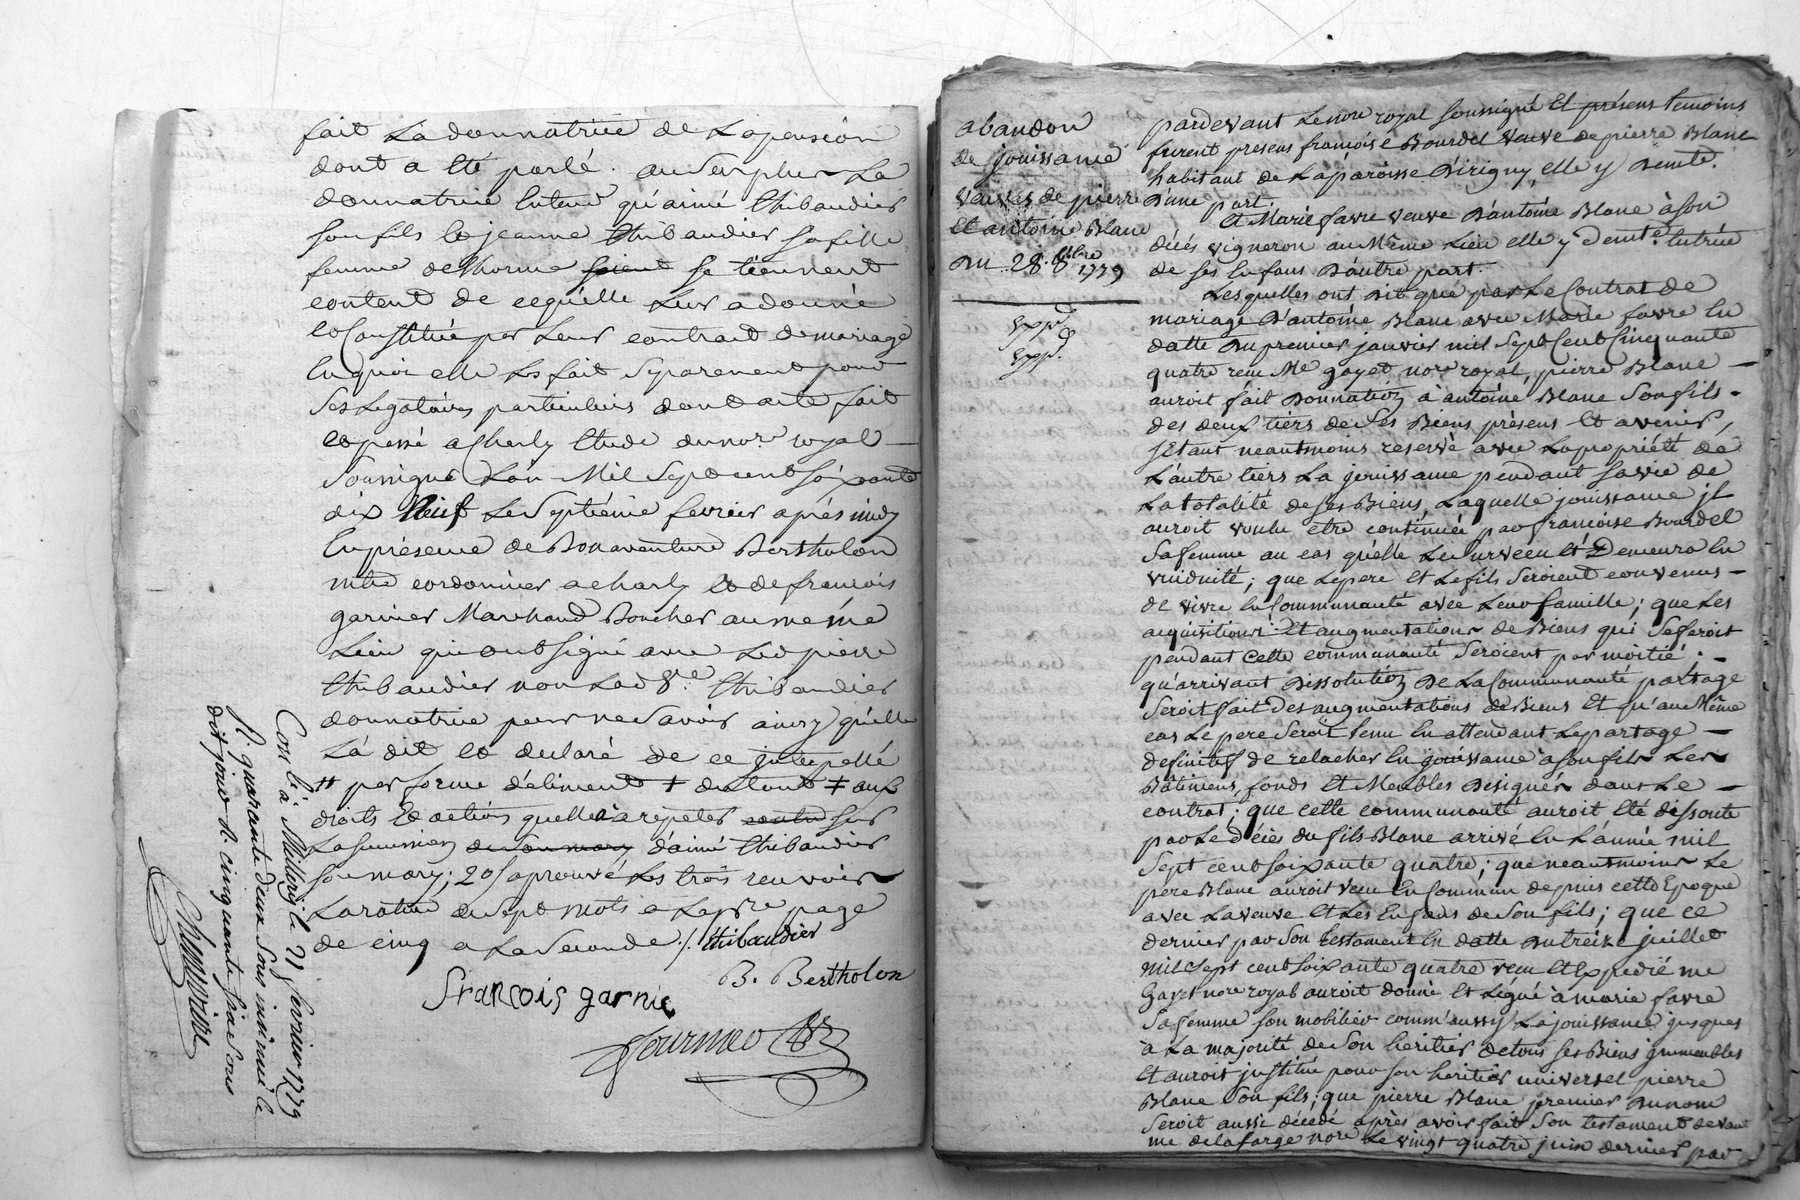 fait La donnatrice de La pension
dont a été parlé. au Surplus La
donnatrice Entend qu'aimé Thibaudier
son fils et jeanne Thibaudier sa fille
femme delhorme soient se tiennent
content de cequ'elle Leur a donné
et Constitué par Leur contrat de mariage
En quoi elle Les fait Separement pour
Ses Legataires particuliers dont acte fait
et passé a Charly Etude du nore royal
Soussigné L'an Mil Sept cent soixante
dix Neuf Le Septième fevrier après midy
En présence de Bonaventure Bertholon
mtre cordonnier a charly et de francois
garnier Marchand Boucher au même
Lieu qui ont signé avec Led pierre
Thibaudier non Lad Ve. Thibaudier
donnatrice pour ne Savoir ainsy qu'elle
La dit et declaré de ce interpellé
# par forme d'aliment + du tout ‡ aux
droits et actions quelle a a repeter contre sur
La succession de son mary d'aimé Thibaudier
son mary; 20 approuvé Les trois renvois
La rature de Sept mots a La pre page
de cinq a La Seconde ./. thibaudier
B. Bertholon
francois garnie
fourmeo
Con lé à Millery le 21 fevrier 1779
R. quarante deux Sous insinué le
dit jour R. cinquante six Sous
abandon
de jouissance
veuves de pierre
Et antoine Blanc
Du 28 8bre
1779
expd
expd.
pardevant Le nore royal soussigné Et présens temoins
furent presens francoise Bourdel veuve de pierre Blanc
habitant de La paroisse D'irigny, elle y Demte.
D'une part.
Et Marie favre veuve D'antoine Blanc à son
décés vigneron au Même Lieu elle y Demte. tutrice
de ses Enfans D'autre part.
Lesquelles ont Dit que par Le Contrat de
mariage D'antoine Blanc avec Marie favre En
datte Du premier janvier mil Sept Cent Cinquante
quatre recu Me gayet nore royal, pierre Blanc
auroit fait Donnation à antoine Blanc Son fils
des deux tiers de Ses Biens présens Et avenir,
s'Etant neantmoins reservé avec La propriété de
L'autre tiers La jouissance pendant sa vie de
La totalité de ses Biens, Laquelle jouissance il
auroit voulu etre continuée par francoise Bourdel
Sa femme au cas qu'elle Le survecu Et Demeura En
viduité; que Le pere Et Le fils Seroient convenus
de vivre En Communauté avec Leur famille; que Les
acquisitions Et augmentations de Biens qui Se feroit
pendant Cette communauté Seroient par moitié.
qu'arrivant Dissolution De La Communauté partage
Seroit fait Des augmentations de Biens Et qu'au Même
cas Le pere Seroit tenu En attendant Le partage
definitif de relacher En jouissance à son fils Les
Bâtimens, fonds Et Meubles Designés dans Le
contrat; que cette communauté auroit été dissoute
par Le décès du fils Blanc arrivé En L'année mil
Sept cent soixante quatre; que neantmoins Le
pere Blanc auroit vecu En Commun depuis cette Epoque
avec La veuve Et Les Enfans de Son fils; que ce
dernier par Son testament En datte Du treize juillet
mil Sept cent soixante quatre recu Et Expedié me
Gayet nore royal auroit donné Et Légué à marie favre
Sa femme son mobilier comm'aussy La jouissance jusques
à La majorité de Son heritier de tous ses Biens immeubles
Et auroit institué pour son heritier universel pierre
Blanc Son fils; que pierre Blanc premier Du nom
Seroit aussi décédé après avoir fait Son testament devant
me delafarge nore Le vingt quatre juin dernier par